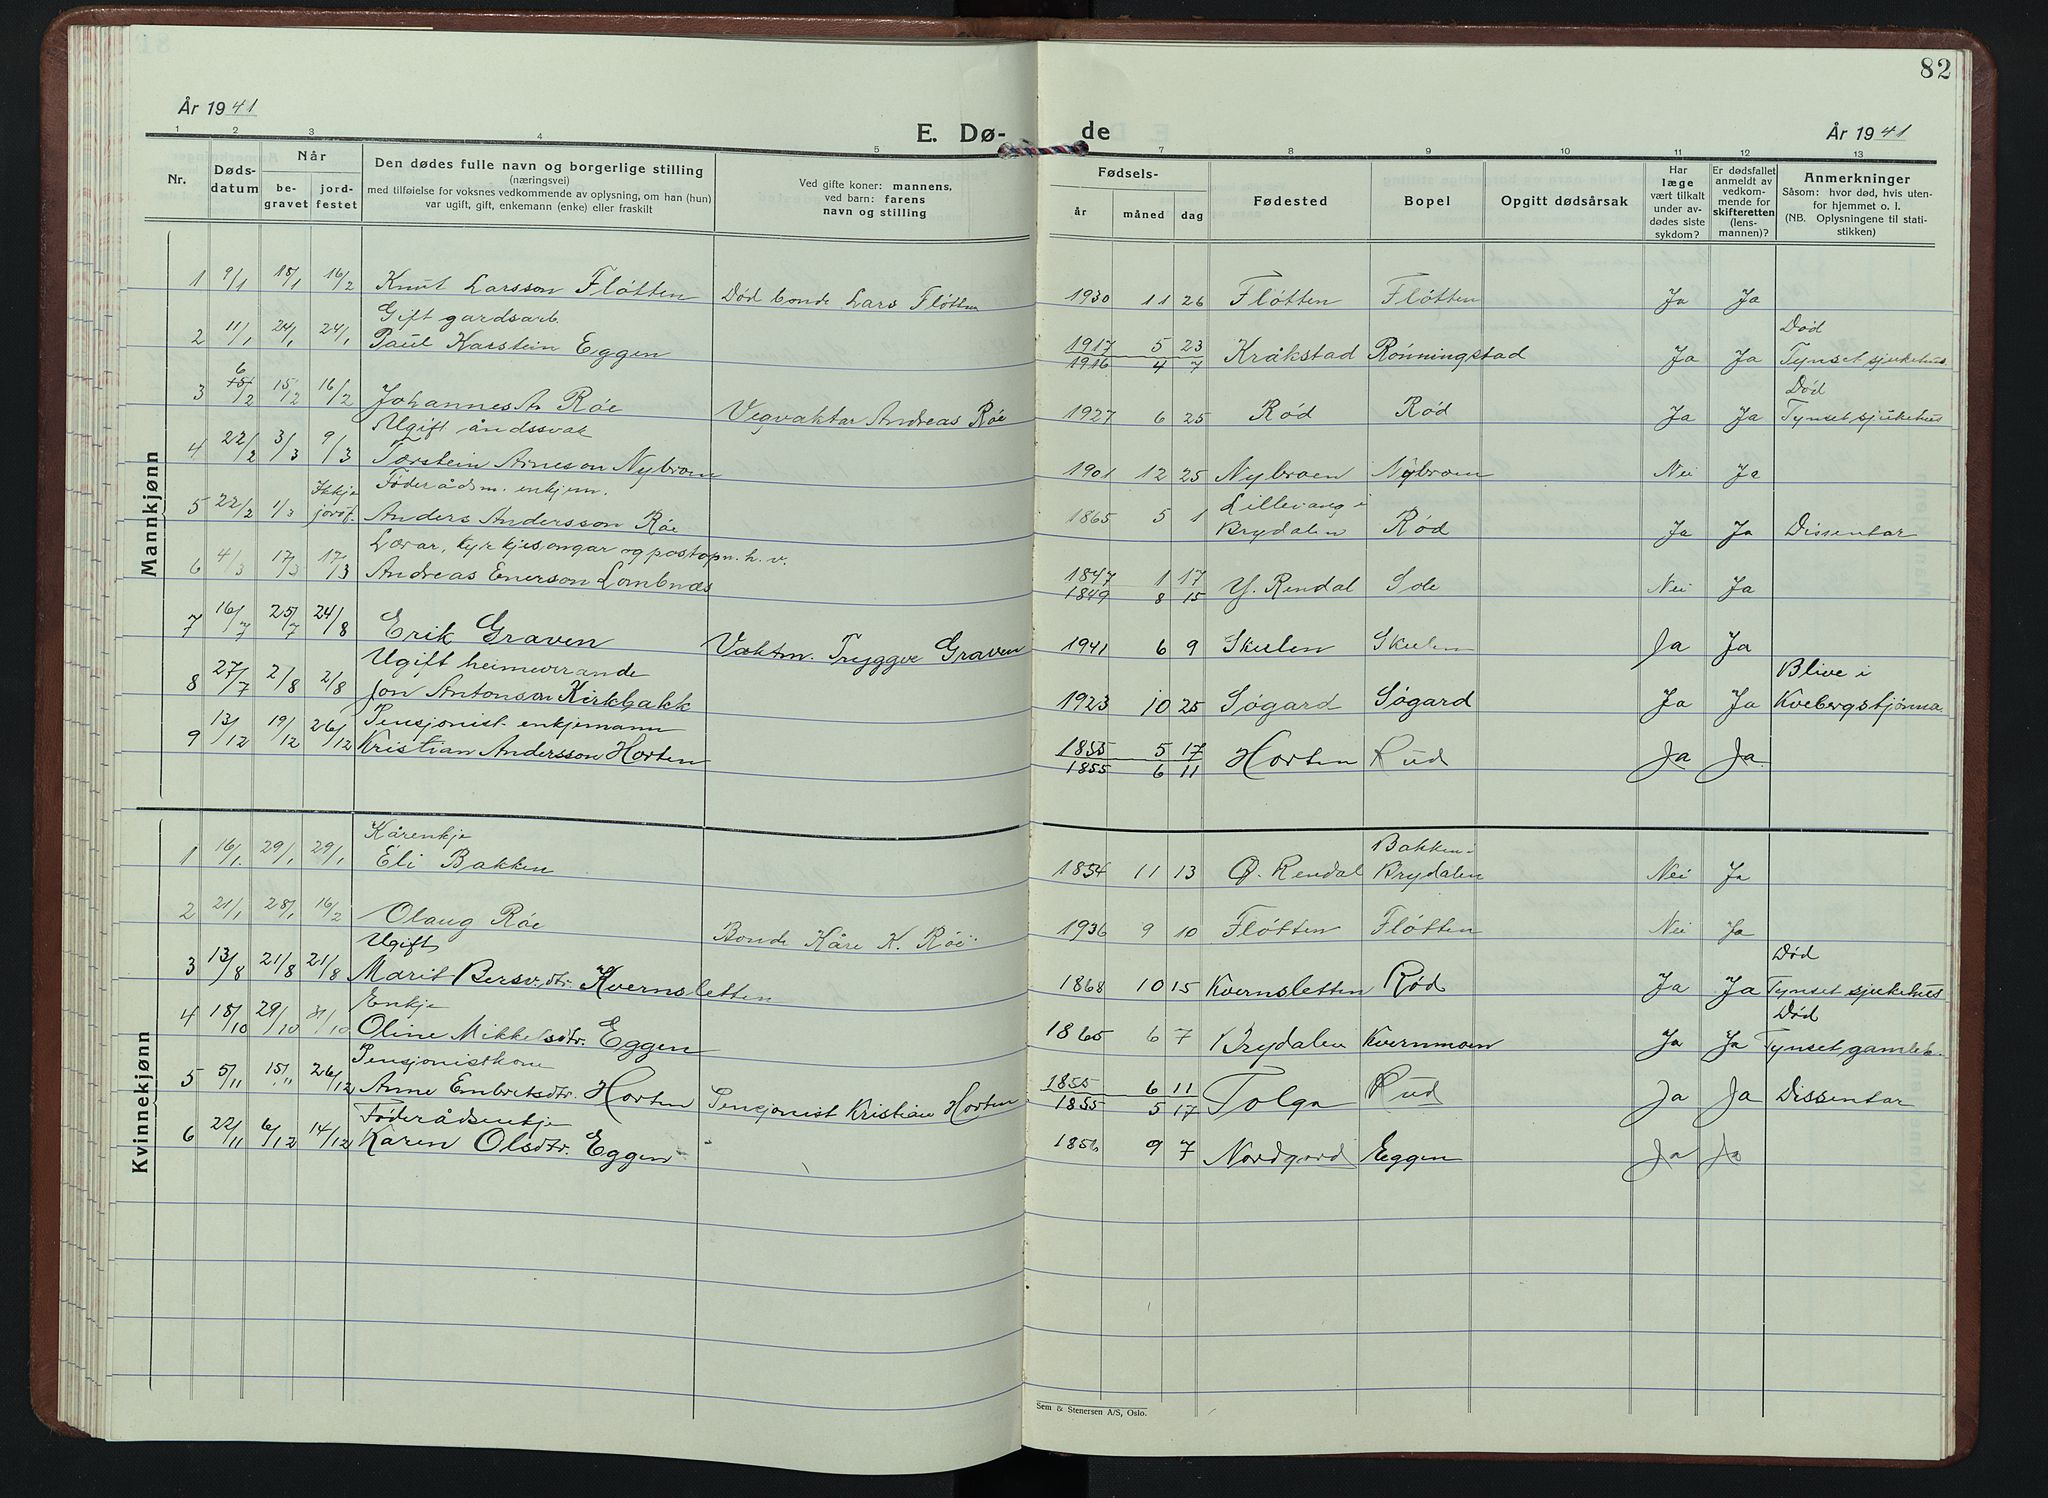 82
År 1941
E. Dø-
de
År 1941
1 2 3 4 5 7 8 9 10 11 12 13
Nr.
Døds-
datum
Når
be-
gravet
jord-
festet
Den dødes fulle navn og borgerlige stilling
(næringsvei)
med tilføielse for voksnes vedkommende av oplysning, om han (hun)
var ugift, gift, enkemann (enke) eller fraskilt
Ved gifte koner: mannens,
ved barn: farens
navn og stilling
Fødsels-
år måned dag
Fødested
Bopel
Opgitt dødsårsak
Har
læge
vært tilkalt
under av-
dødes siste
sykdom?
Er dødsfallet
anmeldt av
vedkom-
mende for
skifteretten
(lens-
mannen)?
Anmerkninger
Såsom: hvor død, hvis uten-
for hjemmet o. l.
(NB. Oplysningene til stati-
stikken)
Mannkjønn
1 9/1 18/1 16/2 Knut Larsson Fløtten Død bonde Lars Fløtten 1930 11 26 Fløtten Fløtten Ja Ja
Gift gardsarb. Død
2 11/1 24/1 24/1 Paul Karstein Eggen 1917 5 23 Kråkstad Rønningstad Ja Ja Tynset sjukehus
1916 4 7
Død
3 6/2 15/2 16/2 Johannes A. Røe Vegvaktar Andreas Røe 1927 6 25 Rød Rød Ja Ja Tynset sjukehus
Ugift åndssvak
4 22/2 3/3 9/3 Torstein Arneson Nybroen 1901 12 25 Nybroen Nybroen Nei Ja
Føderådsm. enkjem. Lillevang i
5 22/2 1/3 Ikkje jordf. Anders Andersson Røe 1865 5 1 Brydalen Rød Ja Ja Dissentar
Lærar, kyrkjesongar og postopn. h. v.
6 4/3 17/3 17/3 Andreas Enerson Lombnæs 1847 1 17 Y. Rendal Sole Nei Ja
1849 8 15
7 16/7 25/7 24/8 Erik Graven Vaktm. Tryggve Graven 1941 6 9 Skulen Skulen Ja Ja
Ugift heimeverande Blive i
8 27/7 2/8 2/8 Jon Antonson Kirkbakk 1923 10 25 Søgard Søgard Ja Ja Kvebergstjønna
Pensjonist enkjemann
9 13/12 19/12 26/12 Kristian Andersson Horten 1855 5 17 Horten Rud Ja Ja
1855 6 11
Kvinnekjønn
Kårenkje Bakken i
1 16/1 29/1 29/1 Eli Bakken 1854 11 13 Ø. Rendal Brydalen Nei Ja
2 21/1 28/1 16/2 Olaug Røe Bonde Kåre K. Røe 1936 9 10 Fløtten Fløtten Nei Ja
Ugift Død
3 13/8 21/8 21/8 Marit Bersv.dtr. Kvernsletten 1868 10 15 Kvernsletten Rød Ja Ja Tynset sjukehus
Enkje Død
4 18/10 29/10 31/10 Oline Mikkelsdtr. Eggen 1865 6 7 Brydalen Kvernmoen Ja Ja Tynset gamleh.
Pensjonistkone
5 5/11 15/11 26/12 Anne Embretsdtr. Horten Pensjonist Kristian Horten 1855 6 11 Tolga Rud Ja Ja Dissentar
1855 5 17
Føderådsenkje
6 22/11 6/12 14/12 Karen Olsdtr. Eggen 1856 9 7 Nordgard Eggen Ja Ja
Sem & Stenersen A/S, Oslo.